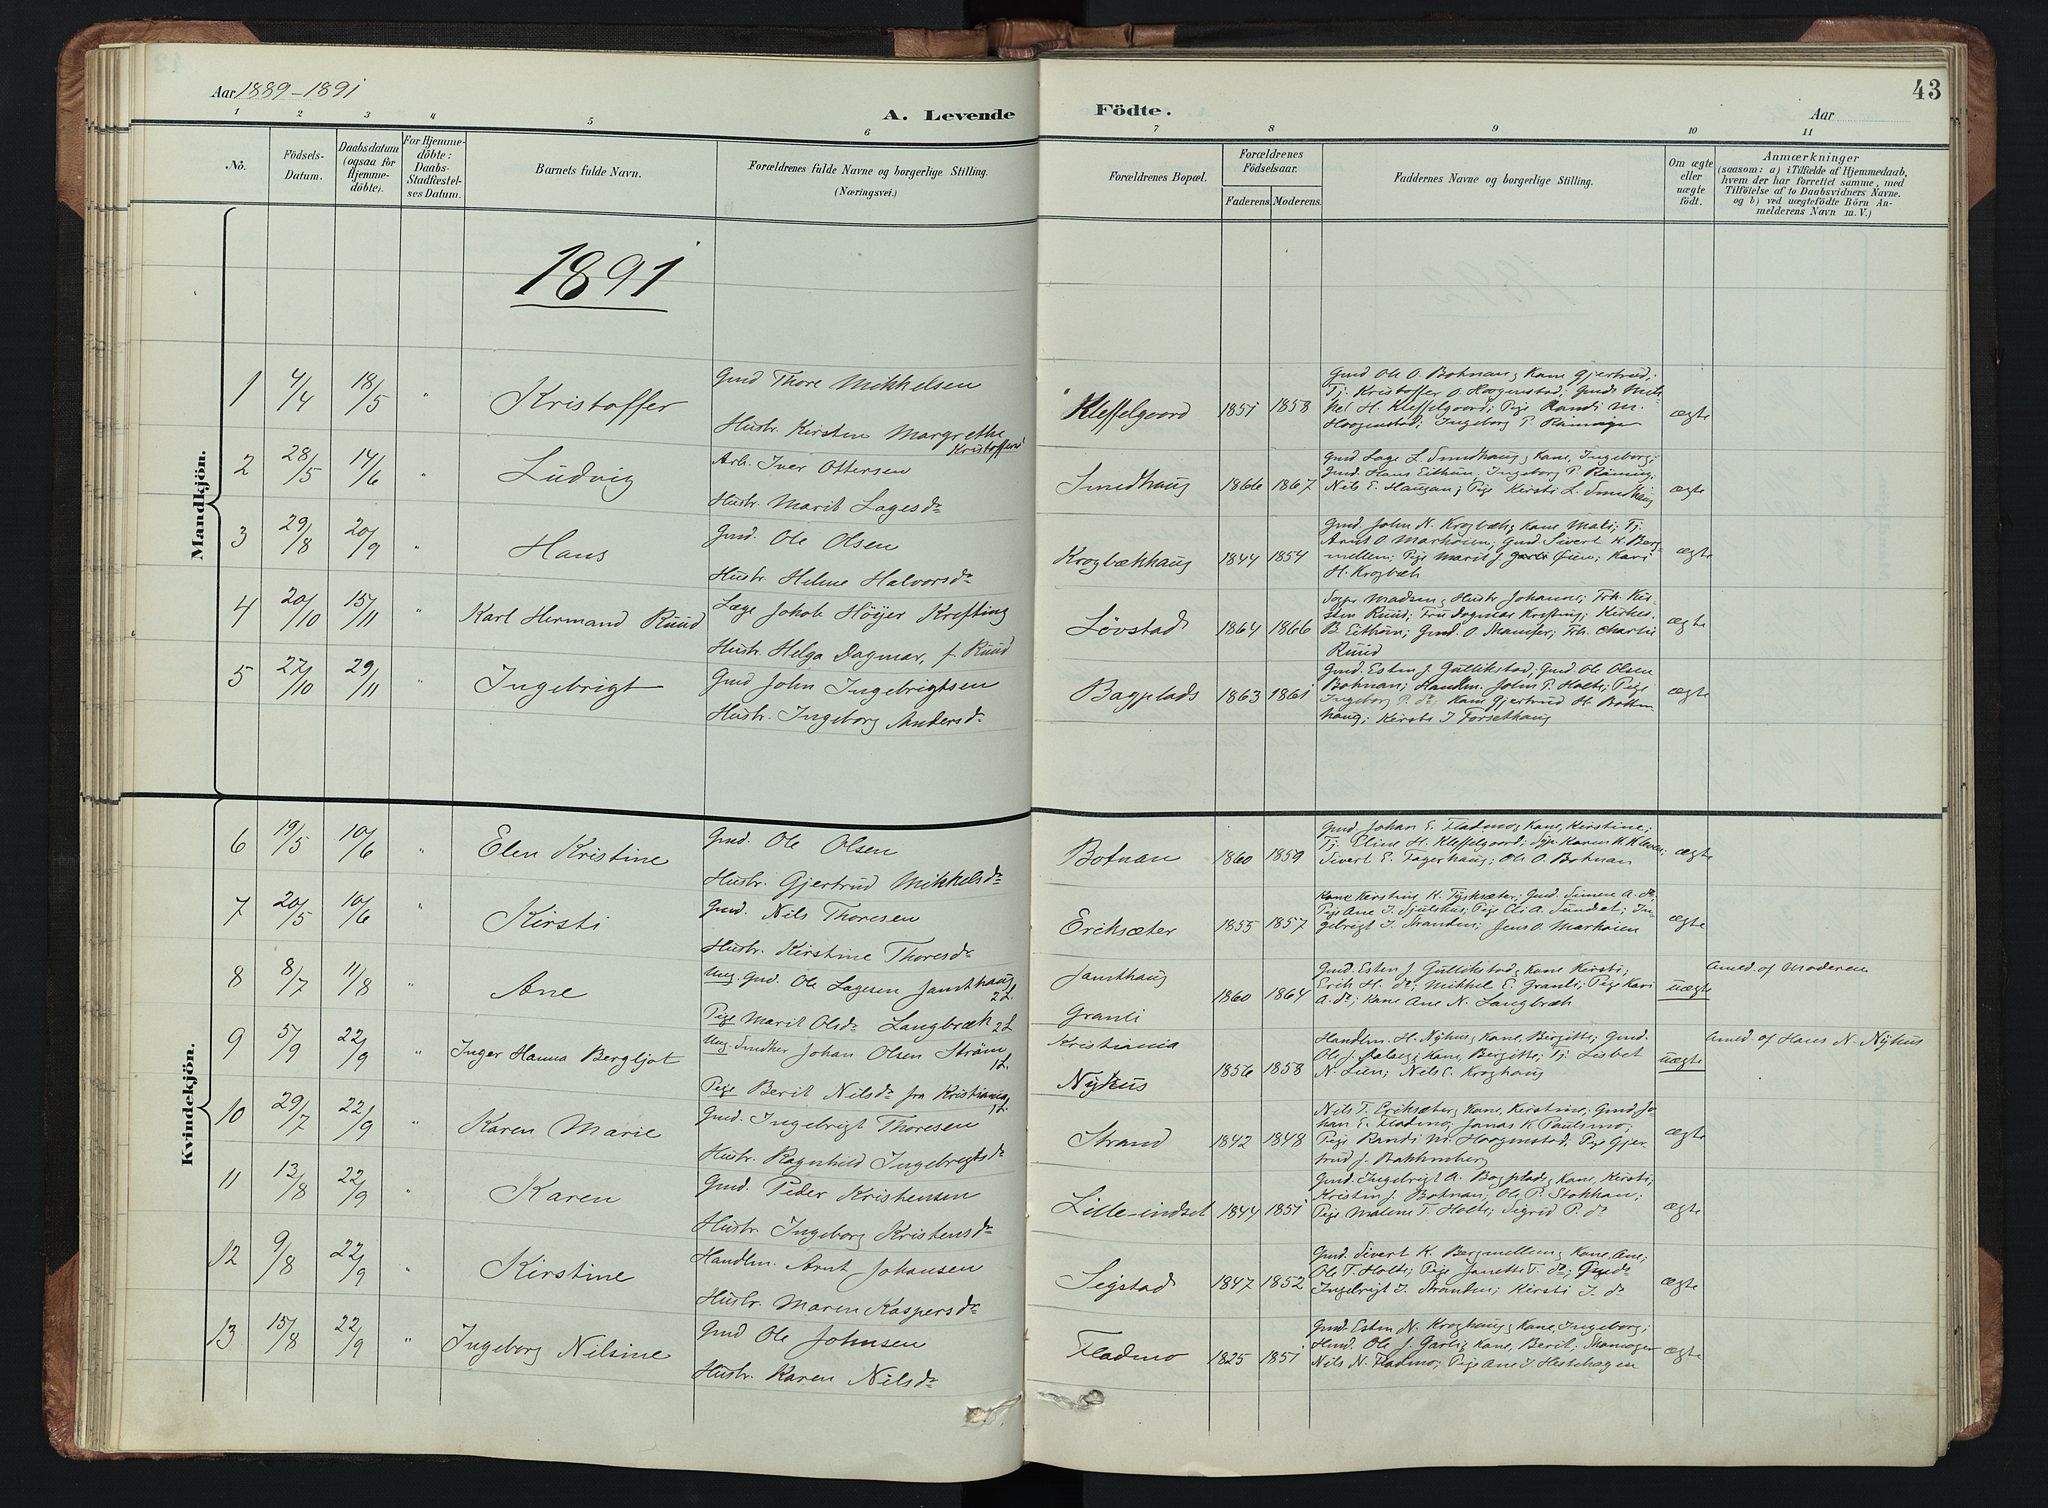 Aar 1889-1891
43
A. Levende Födte.
Aar
1 2 3 4 5 6 7 8 9 10 11
No.
Födsels-Datum.
Daabsdatum (ogsaa for Hjemme-döbte).
For Hjemme-döbte: Daabs-Stadfæstel-ses Datum.
Barnets fulde Navn.
Forældrenes fulde Navne og borgerlige Stilling.
(Næringsvei.)
Forældrenes Bopæl.
Forældrenes Födselsaar.
Faderens. Moderens.
Faddernes Navne og borgerlige Stilling.
Om ægte eller uægte födt.
Anmærkninger
(saasom: a) i Tilfælde af Hjemmedaab,
hvem der har forrettet samme, med
Tilföielse af to Daabsvidners Navne.
og b) ved uægtefödte Börn An-
melderens Navn m. V.)
1891
Mandkjön.
1 4/4 18/5 " Kristoffer
Gmd Thore Mikkelsen
Hustr. Kirsten Margrethe Kristoffersd
Kleffelgaard 1851 1858
Gmd Ole O. Botnan, Kone Gjertrud;
Tj. Kristoffer O. Haagenstad; Gmds Mik-
kel H. Kleffelgaard; Pige Randi M.
Haagenstad; Ingeborg P.
ægte
2 28/5 14/6 " Ludvig
Arb. Iver Ottersen
Hustr. Marit Lagesdr
Smedhaug 1866 1867
Gmd Lage L. Smedhaug, Kone, Ingeborg;
Gmd. Hans Eithun, Ingeborg P.
Nils E. Haugan; Pige Kirsti L. Smedhaug
ægte
3 29/8 20/9 " Hans
Gmd. Ole Olsen
Hustr. Helene Halvorsdr
Krogbækhaug 1844 1854
Gmd. John N. Krogbæk, Kone Mali; Tj.
Arnt O. Markøien; Gmd Sivert K. Berg-
mellem; Pige Marit J. Øien; Kari
H. Krogbæk
ægte
4 20/10 15/11 " Karl Hermand Ruud
Læge Jakob Höyer Krefting
Hustr. Helga Dagmar, f. Ruud
Lövstad 1864 1866
Sogpr. Madsen, Hustr Johanne; Frk. Kir-
sten Ruud; Fru Dagmar Krefting; Kirkes.
B. Eithun; Gmd. O. Stamser; Frk. Charlie
Ruud
ægte
5 27/10 29/11 " Ingebrigt
Gmd John Ingebrigtsen
Hustr. Ingeborg Andersdr
Bagplads 1863 1861
Gmd. Esten J. Gullikstad; Gmd Ole Olsen
Botnan; Handlm. John P. Holte; Pige
Ingeborg P. do; Kone Gjertrud H. Botten-
haug; Kirsti I Forsethaug
ægte
Kvindekjön.
6 19/5 10/6 " Elen Kristine
Gmd. Ole Olsen
Hustr. Gjertrud Mikkelsdr
Botnan 1860 1859
Gmd. Johan E. Fladmo, Kone, Kerstine;
Tj. Eline H. Kleffelgaard; Pige Karen K. Kleven;
Sivert E. Fagerhaug; Ole O. Botnan
ægte
7 20/5 10/6 " Kirsti
Gmd. Nils Thoresen
Hustr. Kirstine Thoresdr
Eriksæter 1855 1857
Kone Kerstine K. Tysksæter; Gmd. Simen A. do;
Pige Ane I. Sjulshus; Pige Eli A. Sundet; In-
gebrigt I. Stranden; Jens O. Markøien
ægte
8 8/7 11/8 " Ane
Ung. Gmd. Ole Lagesen Jamthaug 2 L.
Pige Marit Olsdr Langbræk 2 L
Jamthaug
Granli
1860 1864
Gmd. Esten J. Gullikstad, Kone Kirsti;
Erik H. do; Mikkel E. Granli; Pige Kari
A. do; Kone Ane N. Langbræk
uægte
Anmd. af Moderen
9 5/9 22/9 " Inger Hanna Bergljot
Ung. Snedker Johan Olsen Ström 1 L.
Pige Berit Nilsdr fra Kristiania 1 L.
Kristiania
Nyhus
1856 1858
Handlm. H. Nyhus, Kone, Birgitte; Gmd.
Ole J. Kone, Bergitte; Tj. Lisbet
N. Lien; Nils E. Kroghaug
uægte
Anmd. af Hans N. Nyhus
10 29/7 22/9 " Karen Marie
Gmd. Ingebrigt Thoresen
Hustr. Ragnhild Ingebrigtsdr
Strand 1842 1848
Nils T. Eriksæter, Kone, Kerstine; Gmd. Jo-
han E. Fladmo; Jonas K. Paulsmo;
Pige Randi M. Haagenstad; Pige Gjer-
trud J. Bakkenberg
ægte
11 13/8 22/9 " Karen
Gmd. Peder Kristensen
Hustr. Ingeborg Kristensdr
Lille-indset 1844 1851
Gmd. Ingebrigt A. Bagplads, Kone, Kersti;
Kristen J. Botnan; Ole P. Stokkan;
Pige Malene T. Holte; Sigrid P. do
ægte
12 9/8 22/9 " Kirstine
Handlm. Arnt Johansen
Hustr. Maren Kaspersdr
Segstad 1847 1852
Gmd. Sivert K. Bergmellem, Kone, Ane;
Ole T. Holte; Pige Janette T. do; Gmd
Ingebrigt I. Stranden; Kersti I. do
ægte
13 15/8 22/9 " Ingeborg Nilsine
Gmd Ole Johnsen
Hustr. Karen Nilsdr
Fladmo 1825 1851
Gmd. Esten N. Kroghaug, Kone, Ingeborg;
Hmd. Ole J. Garli, Kone, Berit; Skomager
Nils N. Fladmo; Pige Ane I. Hestehagen
ægte